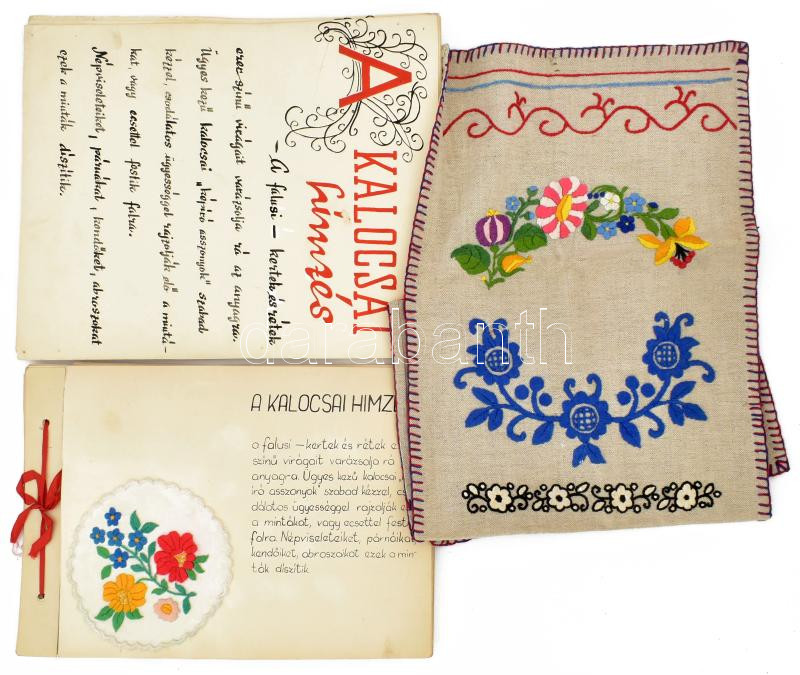 A KALOCSAI
hímzés
– A falusi – kertek és rétek
ezer színű virágait varázsolja rá az anyagra.
Ügyes kezű kalocsai „képíró asszonyok” szabad
kézzel, csodálatos ügyességgel rajzolják elő a mintá-
kat, vagy ecsettel festik falra.
Népviseleteiket, párnákat, kendőket, abroszokat
ezek a minták díszítik.
A KALOCSAI HIMZ
a falusi – kertek és rétek e
szinű virágait varázsolja rá
anyagra. Ügyes kezű kalocsai „
iró asszonyok” szabad kézzel, cs
dálatos ügyességgel rajzolják e
a mintákat, vagy ecsettel fest
falra. Népviseleteiket, párnáikat,
kendőiket, abroszaikat ezek a min-
ták díszitik
darabanth